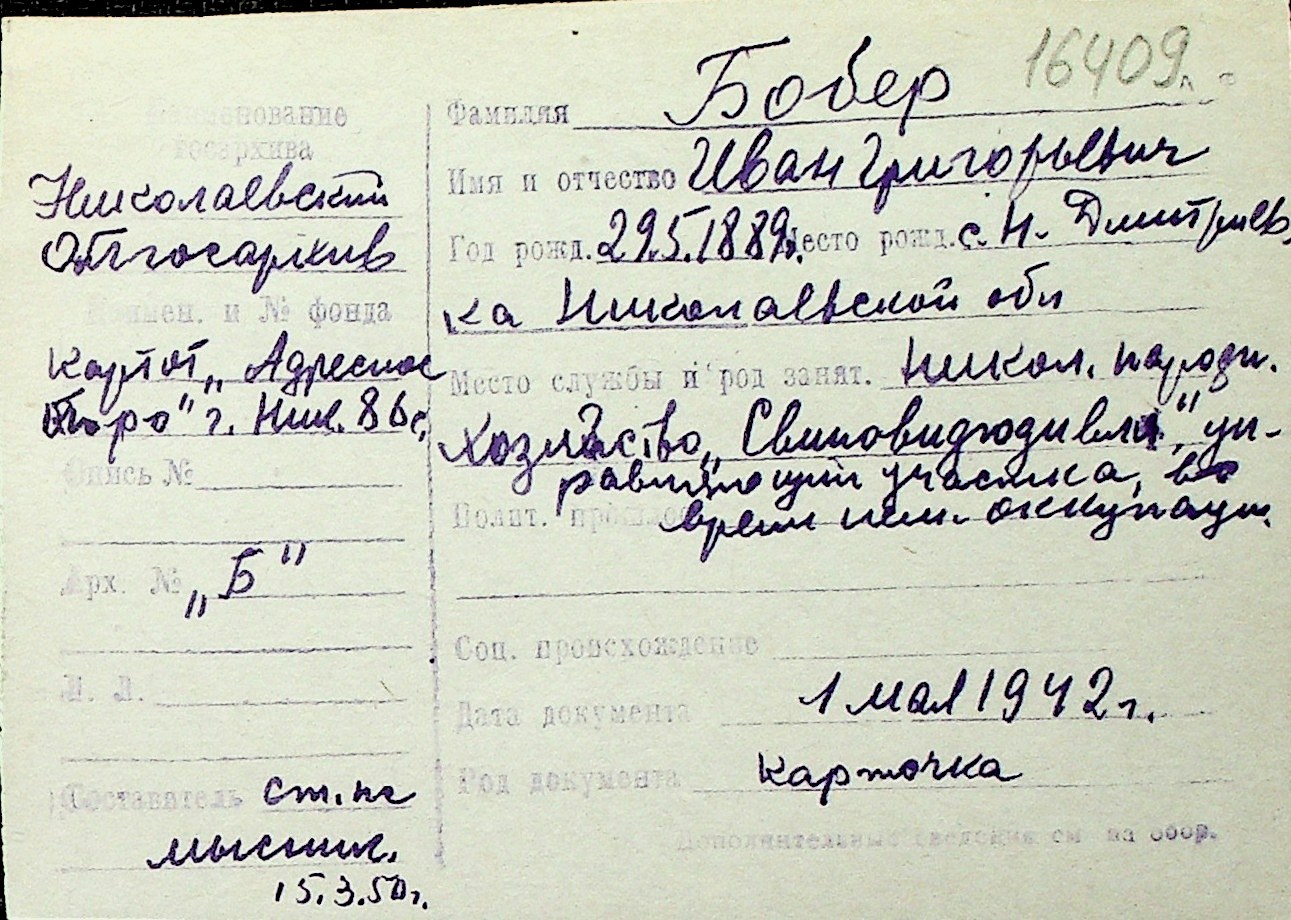 16409
Наименование
госархива
Николаевский
Облгосархив
Наимен. и № фонда
Картот. „Адресное
бюро" г. Ник.
Опись №
Арх. № „Б"
Л. Л.
Составитель ст. на
15.3.50г.
Фамилия Бобер
Имя и отчество Иван Григорьевич
Год рожд. 29.5.1889г. Место рожд. с. Н. Дмитриев
ка Николаевской обл
Место службы и род занят. Никол. народн.
хозяйство „ ," уп-
равляющий участка, во
Полит. прошлое время нем. оккупации.
Соц. происхождение
Дата документа 1 мая 1942 г.
Род документа карточка
Дополнительные сведения см на обор.